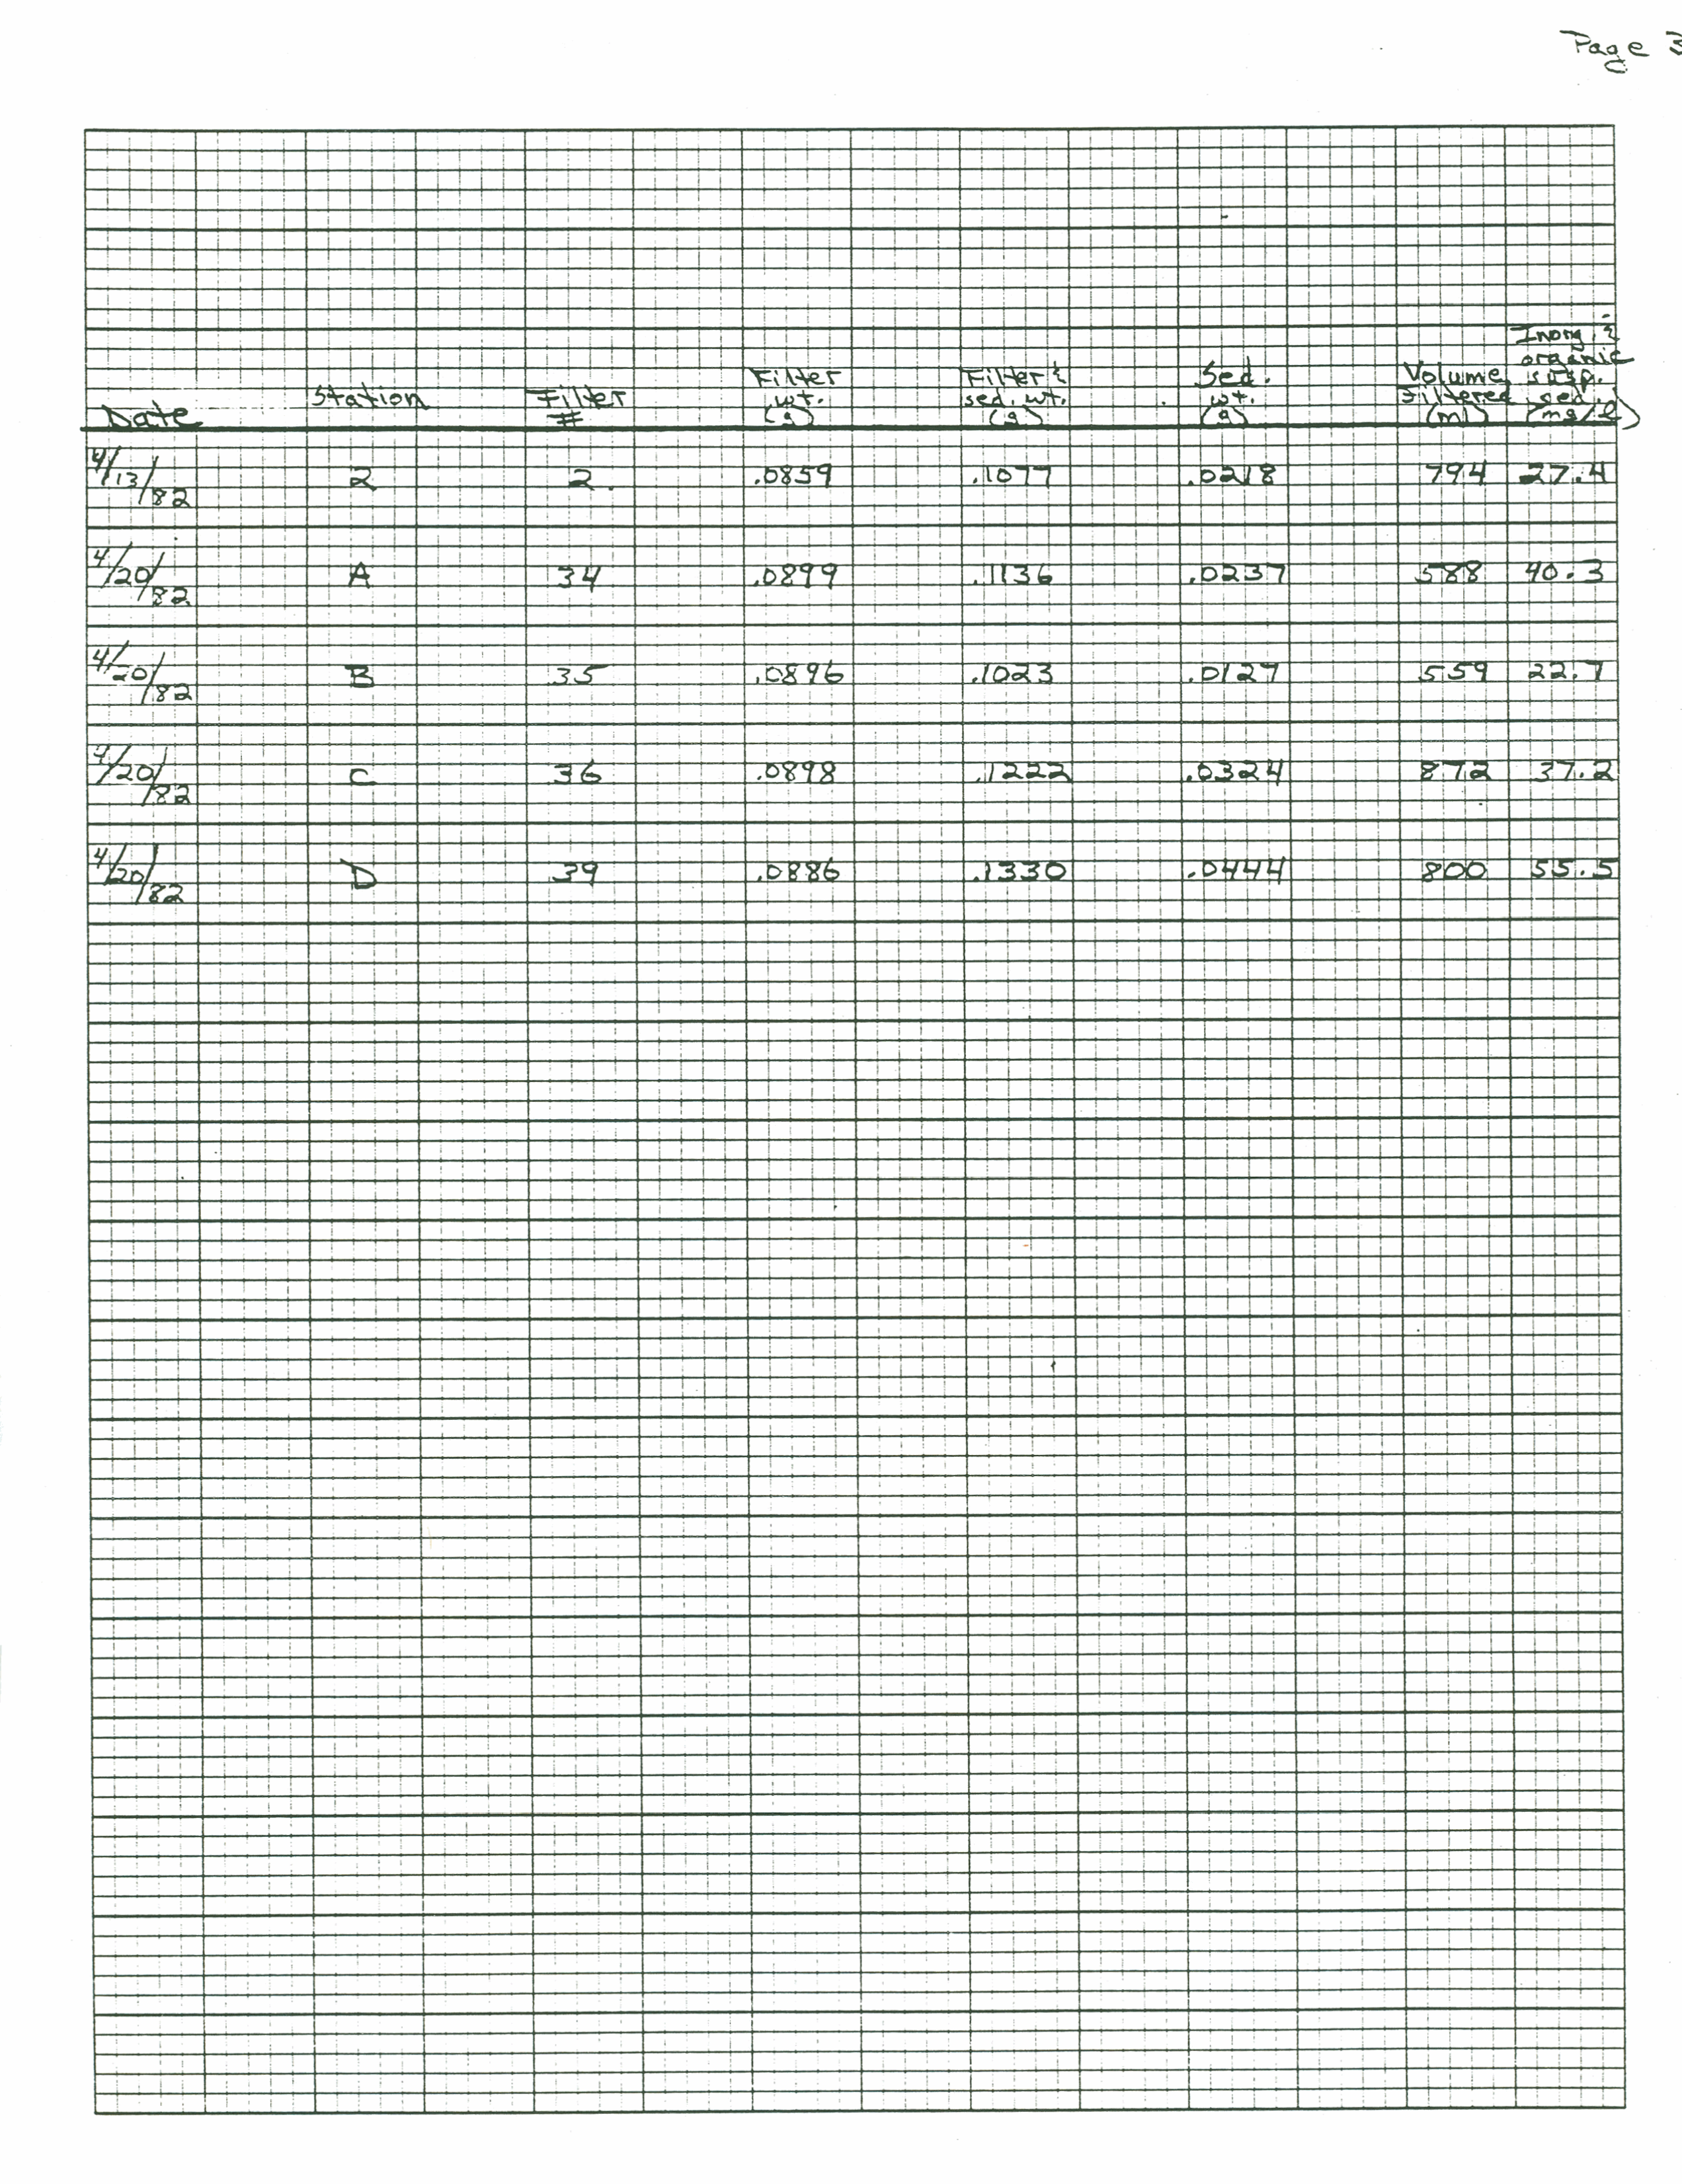 Page 3
Date Station Filter # Filter wt. (g) Filter & sed. wt. (g) Sed. wt. (g) Volume Filtered (ml) Inorg. & organic susp. sed. (mg/l)
4/13/82 2 2. .0859 .1077 .0218 794 27.4
4/20/82 A 34 .0899 .1136 .0237 588 40.3
4/20/82 B 35 .0896 .1023 .0127 559 22.7
4/20/82 C 36 .0898 .1222 .0324 872 37.2
4/20/82 D 39 .0886 .1330 .0444 800 55.5